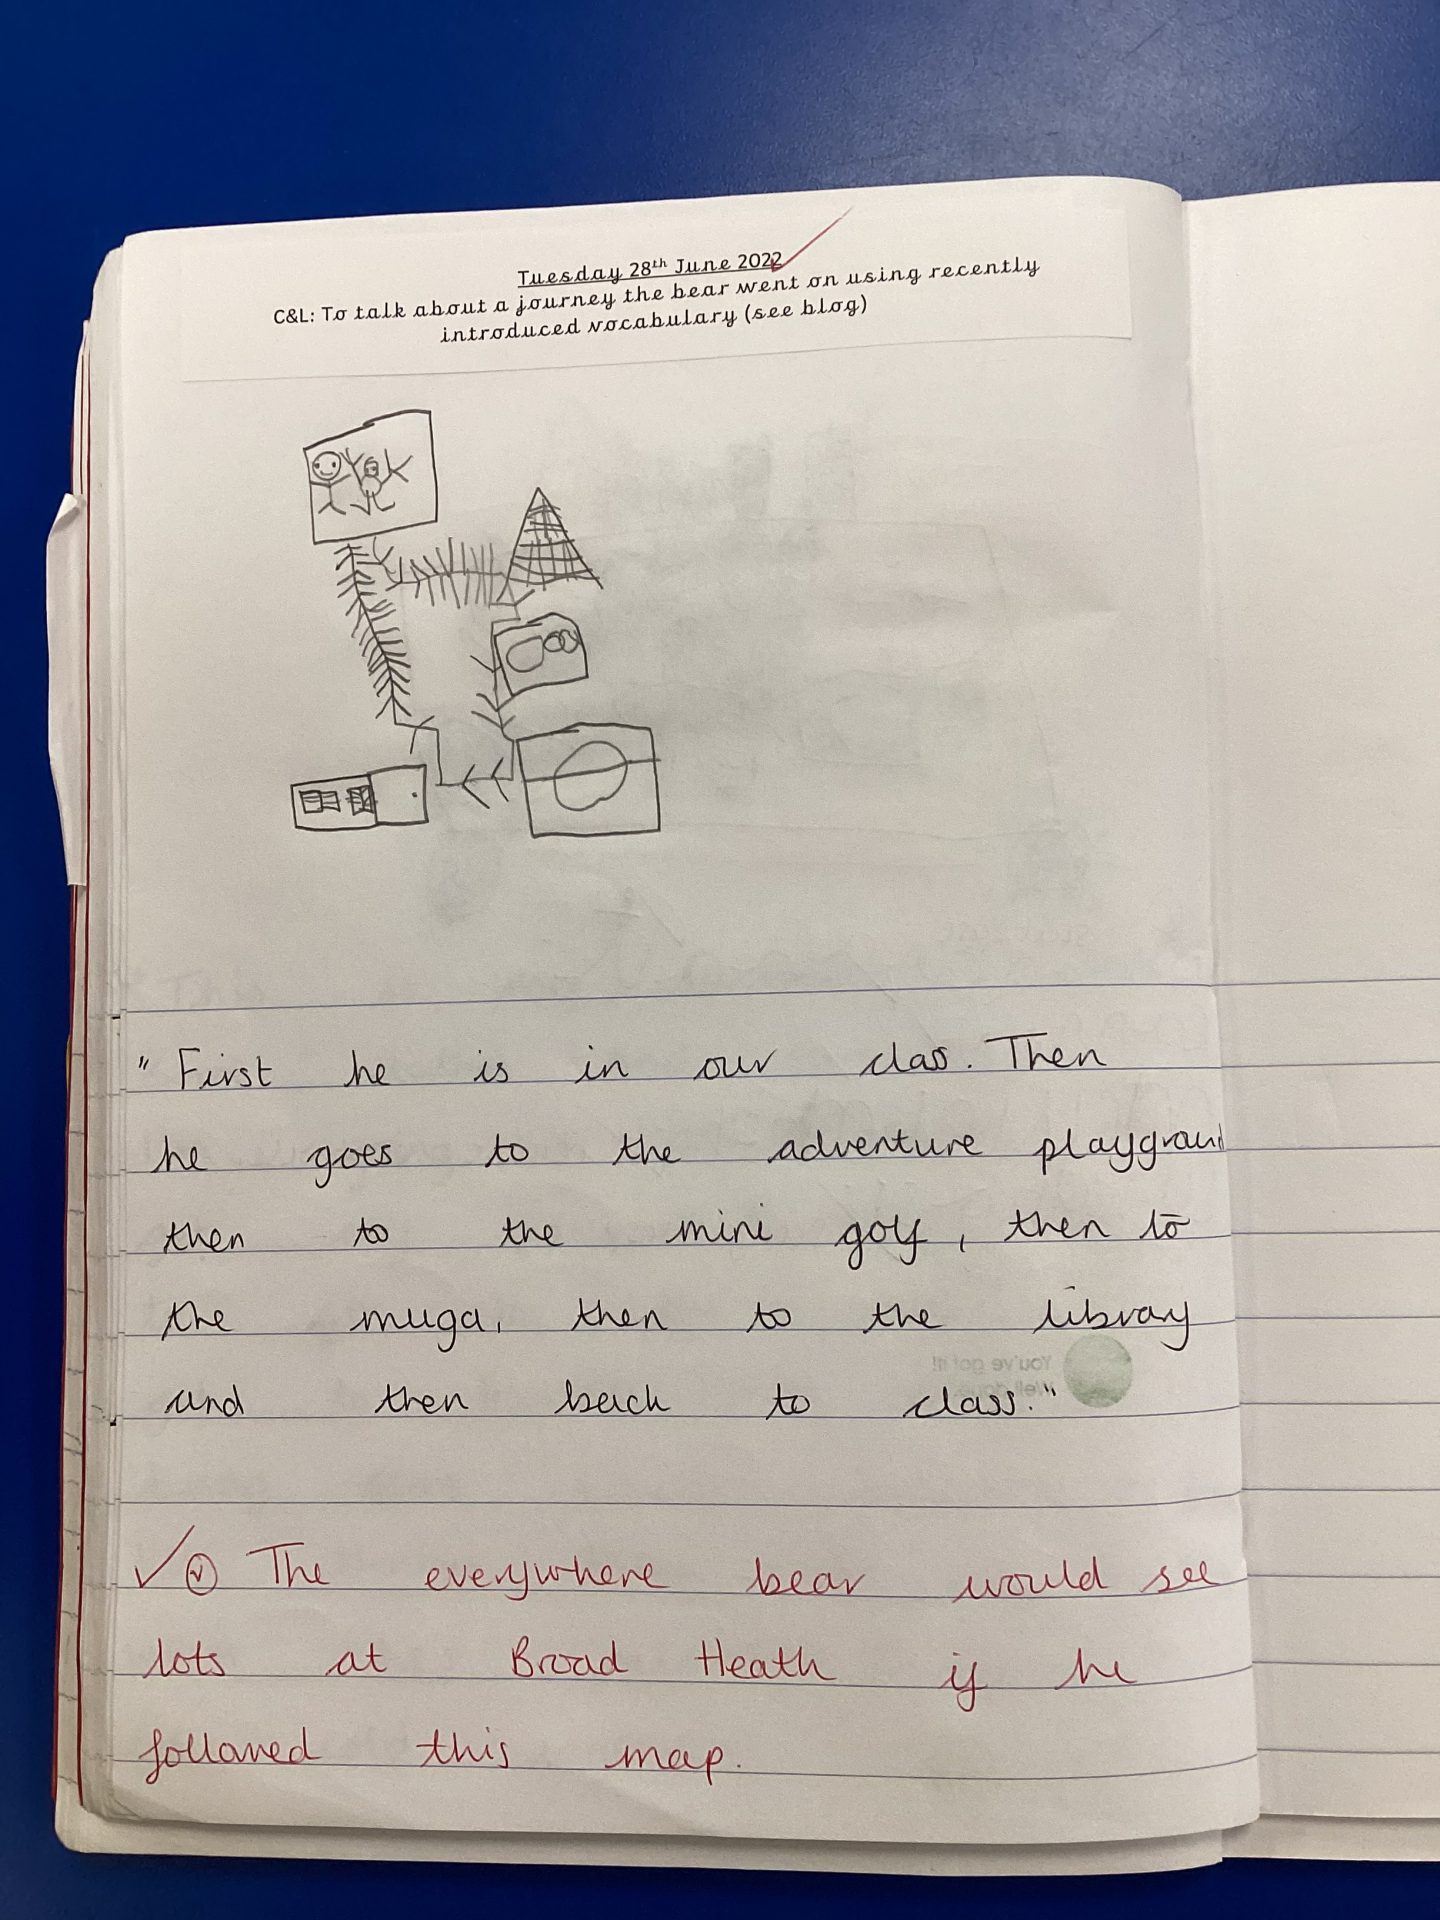 Tuesday 28th June 2022
C&L: To talk about a journey the bear went on using recently
introduced vocabulary (see blog)
"First he is in our class. Then
he goes to the adventure playground
then to the mini golf, then to
the muga, then to the library
and then back to class."
You've got it!
Well done
✓ The everywhere bear would see
lots at Broad Heath if he
followed this map.